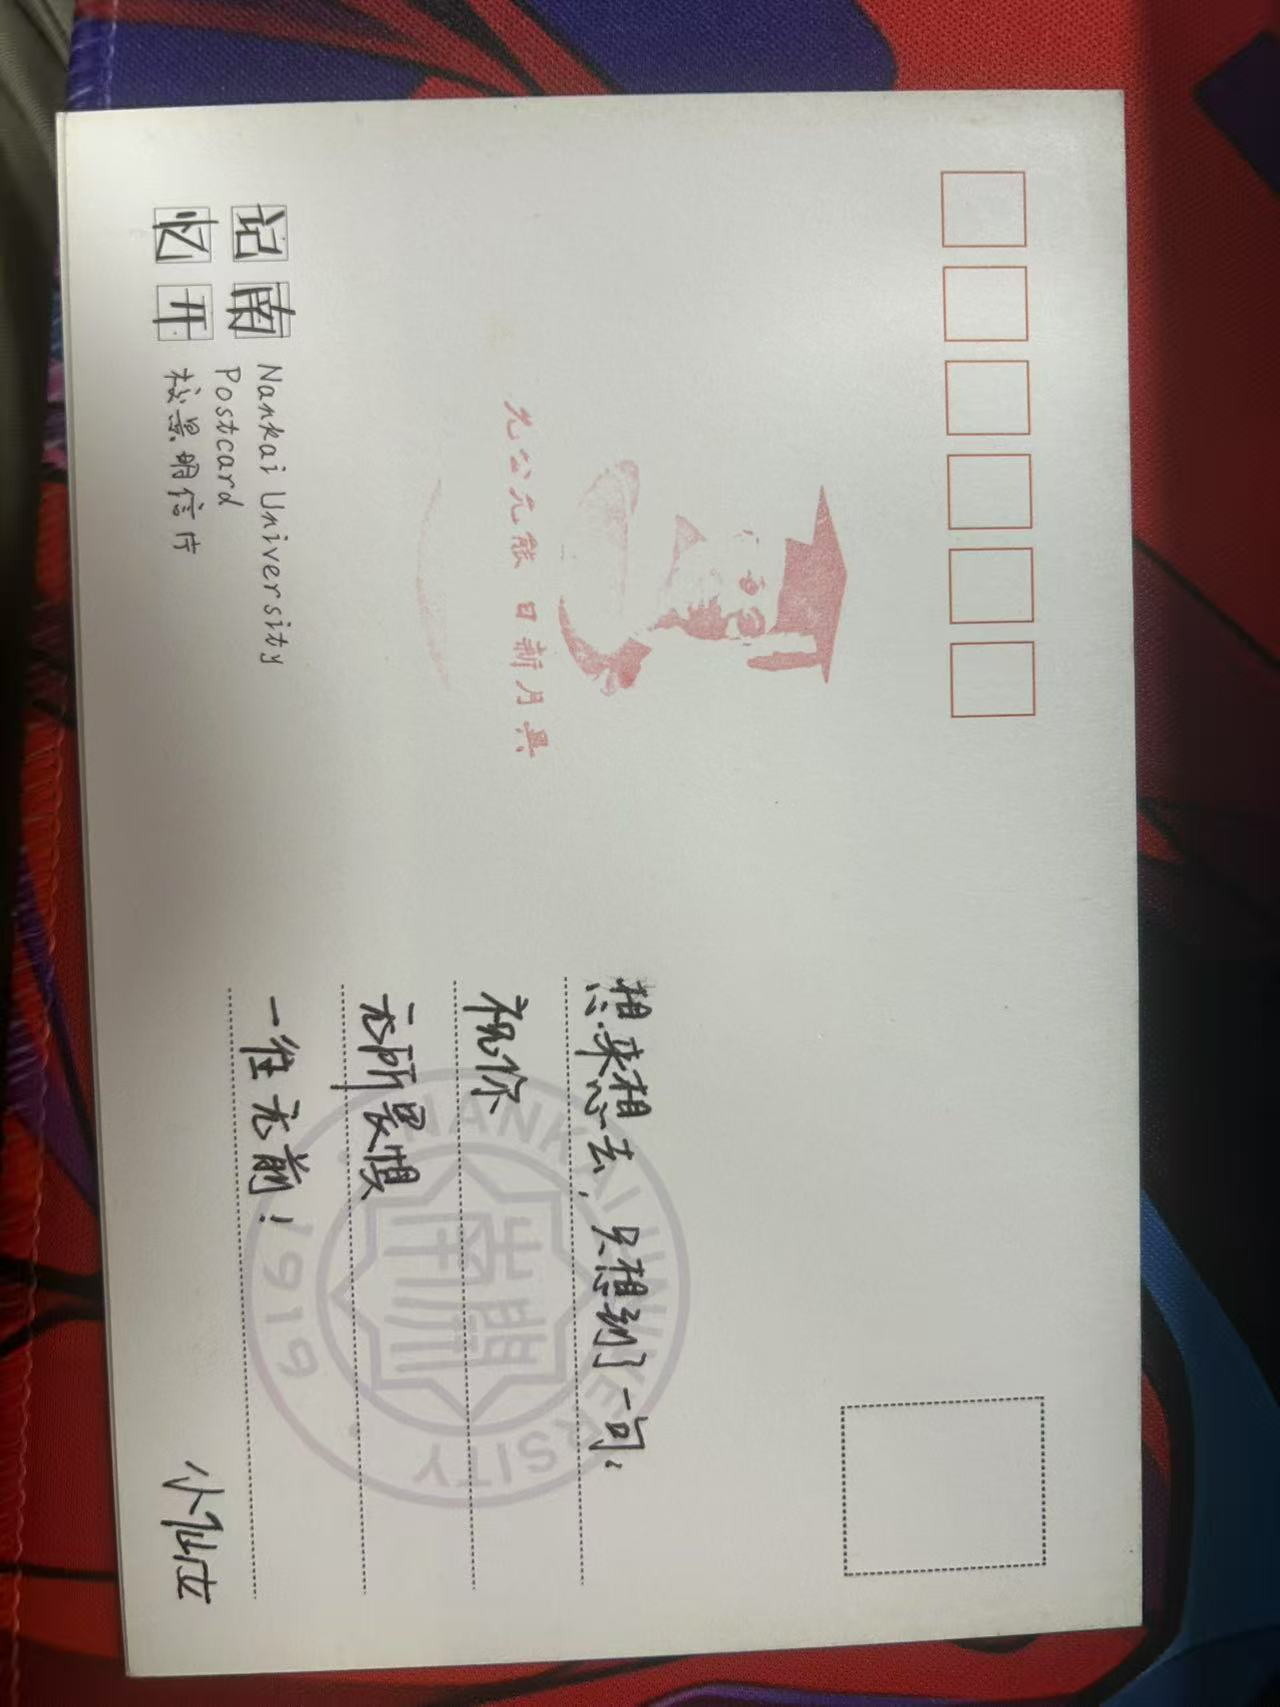 允公允能 日新月異
记南 Nankai University
Postcard
忆开 校景明信片
想来想去，只想到了一句：
祝你
无所畏惧
一往无前！
小仙女
NANKAI UNIVERSITY
南開
1919